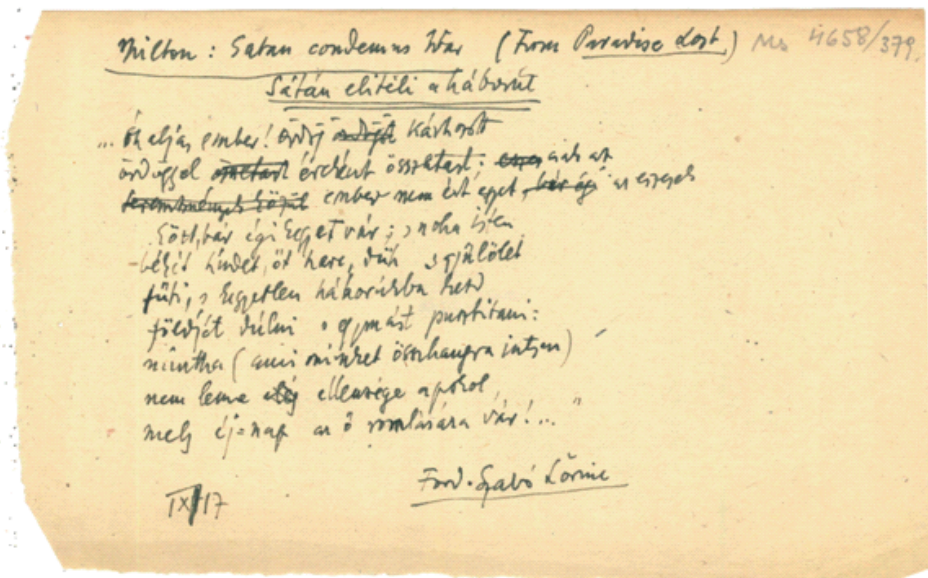 Milton: Satan condemns War (From Paradise Lost) Ms 4658/379.
Sátán elitéli a háborút
... Óh aljas ember! ördög ördögöt kárhozott
ördöggel összetart érdekért összetart; csak az
teremtmények közül ember nem ért egyet, bár égi az eszesek
közt, bár égi kegyet vár; s noha Isten
békét hirdet, őt harc, düh s gyűlölet
fűti, s kegyetlen háborúkba kezd
földjét dúlni s egymást pusztitani:
mintha (ami minket összhangra intsen)
nem lenne elég ellensége a pokol,
mely éj-nap az ő romlására vár!..."
Ford. Szabó Lőrinc
IX/17